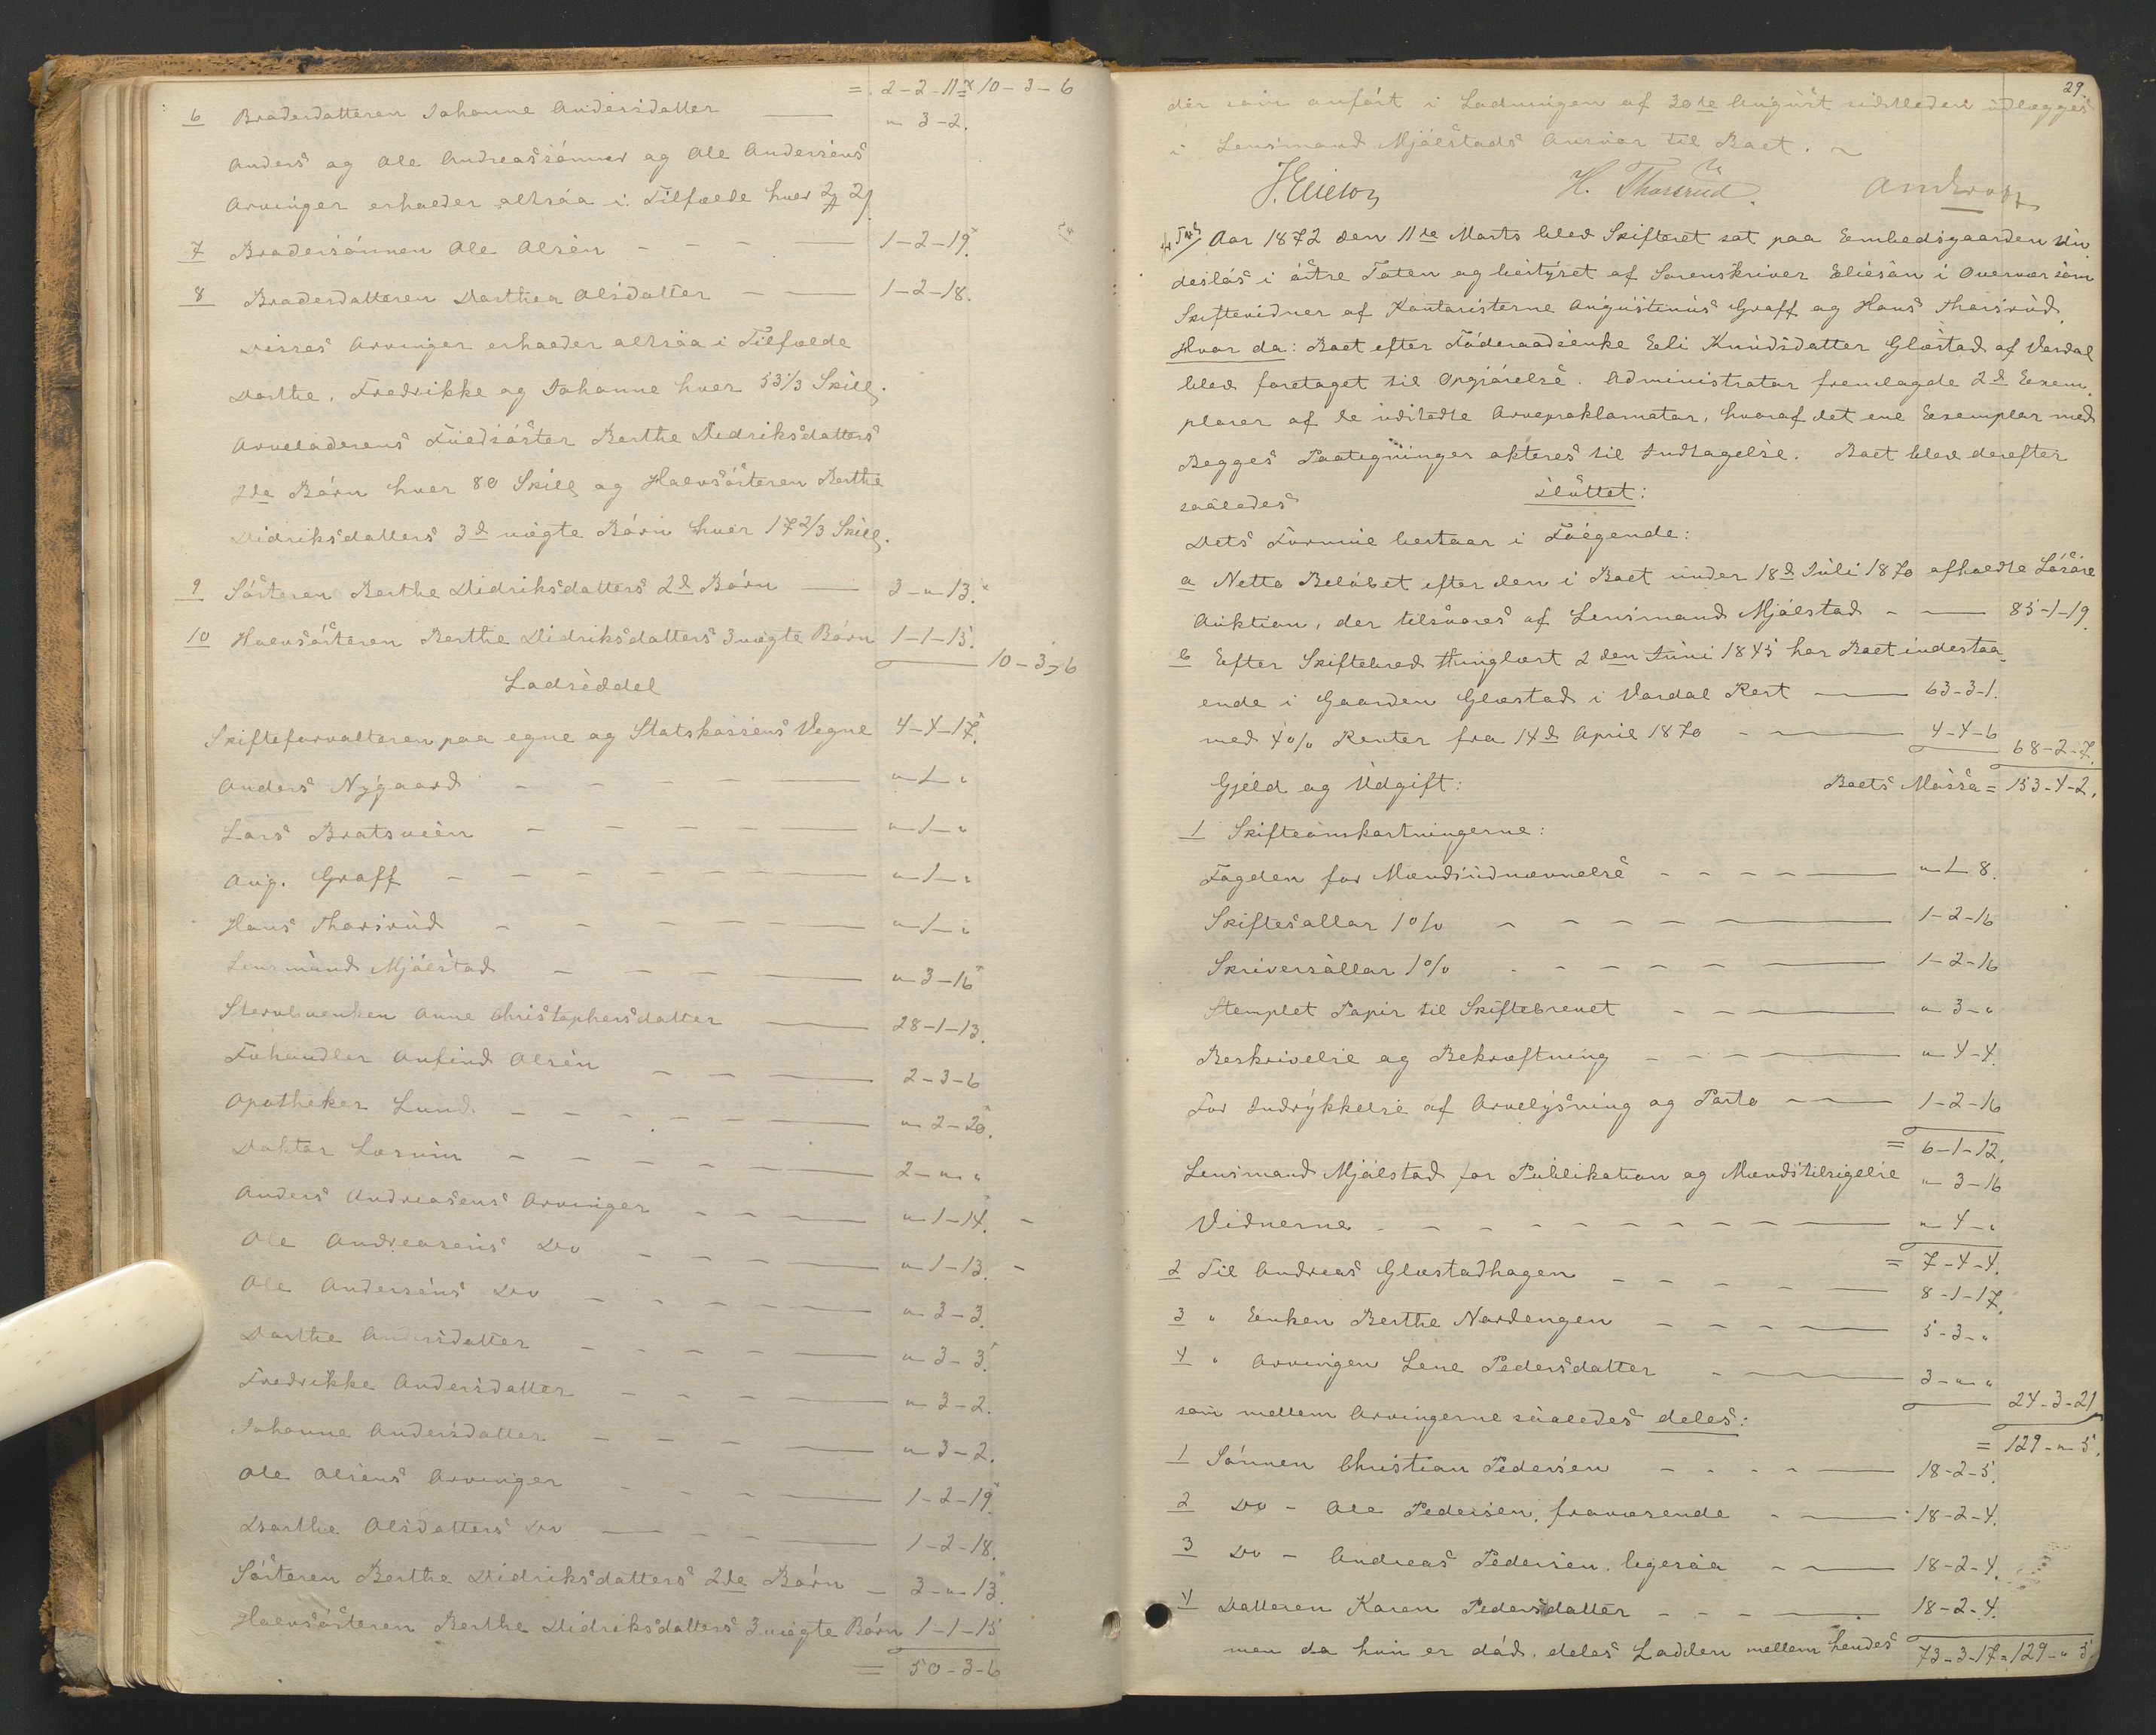 = 2-2-11 10-3-6
6 Broderdatteren Johanne Andersdatter — " 3-2.
Anders og Ole Andreassønner og Ole Andersens
Arvinger erholder altsaa i Tilfælde hver
7 Brodersønnen Ole Olsen - - - 1-2-19.
8 Broderdatteren Dorthea Olsdatter - — 1-2-18.
Disses Arvinger erholder altsaa i Tilfælde
Dorthe, Fredrikke og Johanne hver 53 1/3 Skill.
Arveladerens Fuldsøster Berthe Didriksdatters
2de Børn hver 80 Skill og Halvsøsteren Berthe
Didriksdatters 3d uægte Børn hver 17 2/3 Skill.
9 Søsteren Berthe Didriksdatters 2d Børn — 3-"-13.
10 Halvsøsteren Berthe Didriksdatters 3 uægte Børn 1-1-15.
10-3-6
Lodseddel
Skifteforvalteren paa egne og Statskassens Vegne 4-4-17.
Anders Nygaard - - - - — "-1-"
Lars Bratsveen - - - - — "-1-"
Aug. Graff - - - - - — "-1-"
Hans Thorsrud - - - - — "-1-"
Lensmand Mjølstad - - - — "-3-16
Stervbuenken Anne Christophersdatter — 28-1-13.
Fehandler Anfind Olsen - - — 2-3-6
Apotheker Lund - - - - — "-2-20.
Doktor Lorum - - - - — 2-"-"
Anders Andreasens Arvinger - - - — "-1-14. -
Ole Andreasens Do - - - — "-1-13. -
Ole Andersens Do - - - — "-3-3.
Dorthe Andersdatter - - - — "-3-3.
Fredrikke Andersdatter - - - — "-3-2.
Johanne Andersdatter - - - — "-3-2.
Ole Olsens Arvinger - - - — 1-2-19.
Dorthe Olsdatters Do — - - — 1-2-18.
Søsteren Berthe Didriksdatters 2de Børn — 3-"-13.
Halvsøsteren Berthe Didriksdatters 3 uægte Børn 1-1-15
= 50-3-6
29.
der som anført i Ladningen af 30te August sidstleden udlægges
i Lensmand Mjølstads Ansvar til Boet.
H. Thorsrud.
Aar 1872 den 11te Marts blev Skifteret sat paa Embedsgaarden Un
deslös i östre Toten og bestyret af Sorenskriver Eliesön i Overvær som
Skiftevidner af Kontoristerne Augustinus Graff og Hans Thorsrud.
Hvor da: Boet efter Föderaadsenke Eli Knudsdatter Glæstad af Vardal
blev foretaget til Opgjörelse. Administrator fremlagde 2d Exem
plarer af de udstedte Arveproklamater, hvoraf det ene Exemplar med
Begges Paategninger akteres til Indtagelse. Boet blev derefter
saaledes sluttet:
Dets Formue bestaar i Fölgende:
a Netto Belöbet efter den i Boet under 18d Juli 1870 afholdte Lösöre
Auktion, der tilsvares af Lensmand Mjölstad - — 85-1-19.
b Efter Skiftebrev thinglæst 2den Juni 1845 har Boet indestaa
ende i Gaarden Glæstad i Vardal Rest — 63-3-1.
med 4% Renter fra 14d April 1870 - — 4-4-6
68-2-7.
Gjeld og Udgift: Boets Massa = 153-4-2.
1 Skifteomkostningerne:
Fogden for Mændsudnævnelse - - - - — "-1-8.
Skiftesallar 1% - - - - - — 1-2-16
Skriversallar 1% - - - - - — 1-2-16
Stemplet Papir til Skiftebrevet - - — "-3-"
Beskrivelse og Bekræftning - - - - — "-4-4.
For Indrykkelse af Arvelysning og Porto - — 1-2-16
= 6-1-12.
Lensmand Mjölstad for Publikation og Mændstilsigelse "-3-16
Vidnerne - - - - - - - — "-4-"
= 7-4-4.
2 Til Andreas Glæstadhagen - - - - — 8-1-17.
3 " Enken Berthe Nordengen - - - — 5-3-"
4 " Arvingen Lene Pedersdatter - — 3-"-"
24-3-21
som mellem Arvingerne saaledes deles:
= 129-"-5.
1 Sönnen Christian Pedersen - - - - — 18-2-5.
2 Do - Ole Pedersen, fraværende - — 18-2-4.
3 Do - Andreas Pedersen, ligesaa - — 18-2-4.
4 Datteren Karen Pedersdatter - - - — 18-2-4.
men da hun er död, deles Lodden mellem hendes 73-3-17 = 129-"-5.